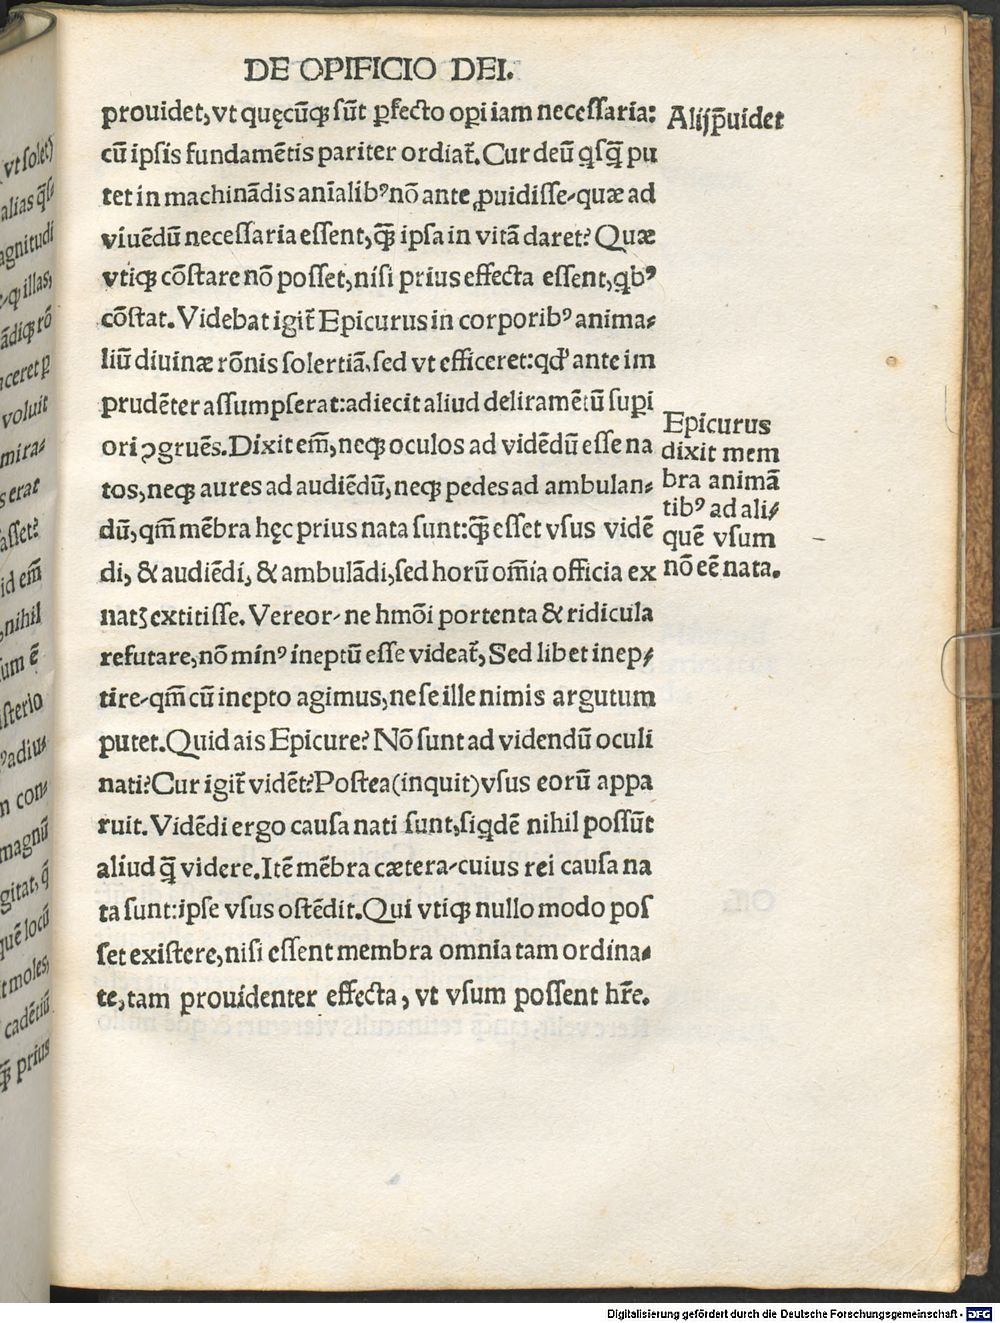 DE OPIFICIO DEI.
prouidet, vt quęcūqꝫ sūt ꝑfecto oꝑi iam necessaria:
Alijs ꝓuidet
cū ipsis fundamētis pariter ordiat᷑. Cur deū qͥsqꝫ̄ pu
tet in machinādis anīalibꝰ nō ante ꝓuidisse, quæ ad
viuēdū necessaria essent, qꝫ̄ ipsa in vitā daret? Quæ
vtiqꝫ cōstare nō posset, nisi prius effecta essent, qͥbꝰ
cōstat. Videbat igit᷑ Epicurus in corporibꝰ anima⸗
liū diuinæ rōnis solertiā, sed vt efficeret: qd' ante im
prudēter assumpserat: adiecit aliud deliramētū suꝑi
ori ꝯgruēs. Dixit em̄, neqꝫ oculos ad vidēdū esse na
tos, neqꝫ aures ad audiēdū, neqꝫ pedes ad ambulan⸗
dū, qm̄ mēbra hęc prius nata sunt: qꝫ̄ esset vsus vidē
di, & audiēdi, & ambulādi, sed horū om̄ia officia ex
natꝫ extitisse. Vereor, ne hmōi portenta & ridicula
refutare, nō minꝰ ineptū esse videat᷑, Sed libet inep⸗
tire, qm̄ cū inepto agimus, ne se ille nimis argutum
putet. Quid ais Epicure? Nō sunt ad videndū oculi
nati? Cur igit᷑ vidēt? Postea (inquit) vsus eorū appa
ruit. Vidēdi ergo causa nati sunt, siqͥdē nihil possūt
aliud qꝫ̄ videre. Itē mēbra cætera, cuius rei causa na
ta sunt: ipse vsus ostēdit. Qui vtiqꝫ nullo modo pos
set existere, nisi essent membra omnia tam ordina⸗
te, tam prouidenter effecta, vt vsum possent hr̄e.
Epicurus
dixit mem
bra animā
tibꝰ ad ali⸗
quē vsum
nō eē nata.
vt solet)
alias
agnitudi
illas,
voluit
mira⸗
serat
asset?
id em̄
nihil
um ē
isterio
adiu⸗
m con⸗
magnū
gitat,
quē locū
t moles,
cadētiū
qꝫ̄ prius
Digitalisierung gefördert durch die Deutsche Forschungsgemeinschaft - DFG